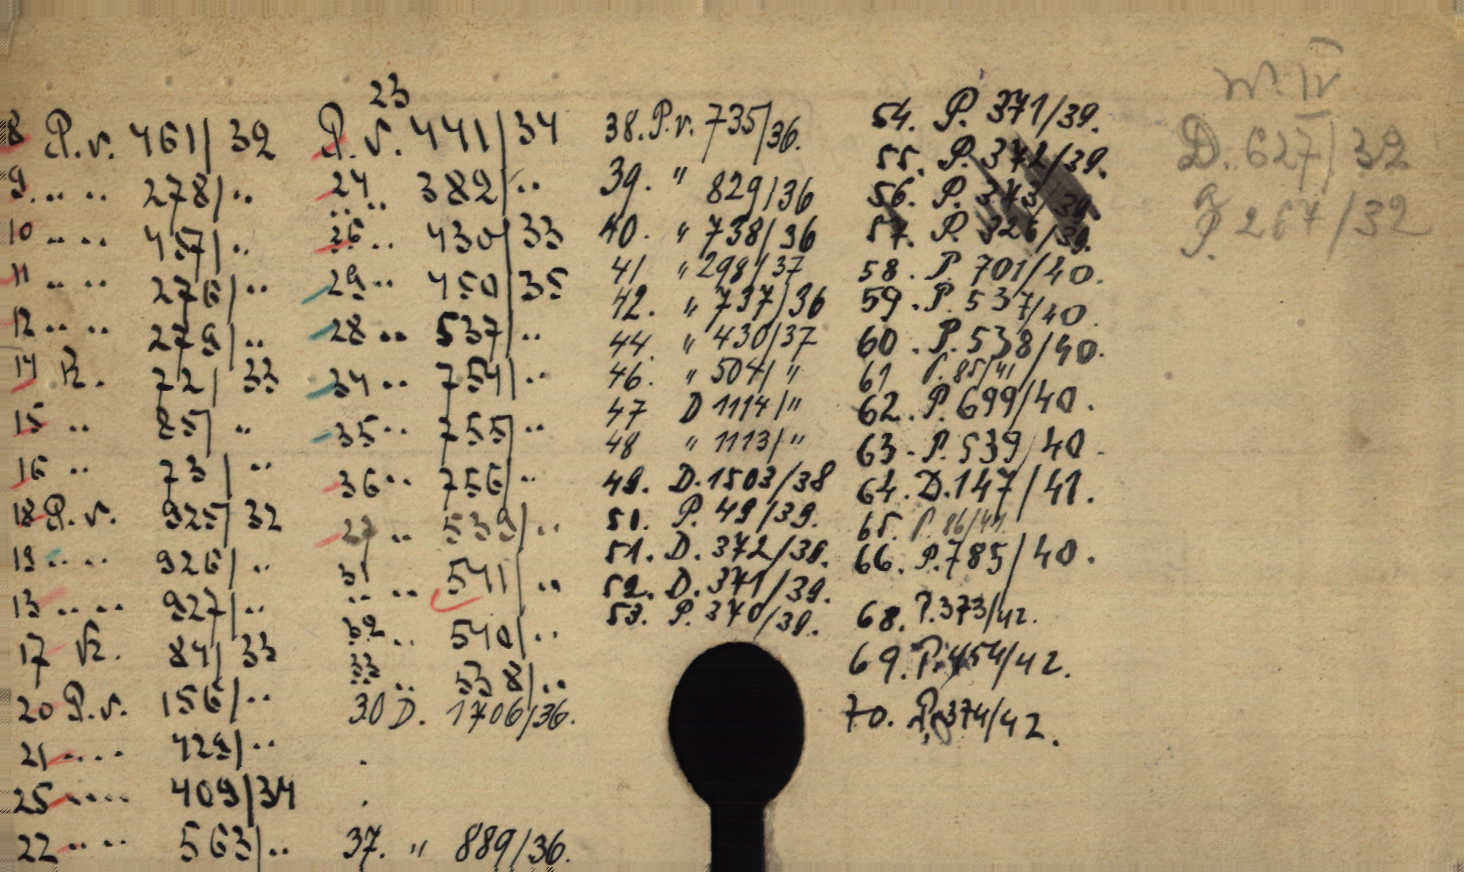 8 P.v. 461/32
9. .. .. 278/..
10 .. .. 457/..
11 .. .. 276/..
12 .. .. 279/..
14 R. 72/33
15 .. 85/..
16 .. 73/..
18 P.v. 925/32
19 .. .. 926/..
13 .. .. 927/..
17 R. 84/33
20 P.v. 156/..
21 .. .. 429/..
25 .. .. 409/34
22 .. .. 563/..
23
P.v. 441/34
24 .. 382/..
26 .. 430/33
29 .. 450/35
28 .. 537/..
34 .. 754/..
35 .. 755/..
36 .. 756/..
27 .. 539/..
31 .. 541/..
32 .. 540/..
33 .. 538/..
30 D. 1706/36.
37. " 889/36.
38. P.v. 735/36.
39. " 829/36
40. " 738/36
41 " 298/37
42. " 737/36
44 " 430/37
46. " 504/"
47 D 1114/"
48 " 1113/"
49. D. 1503/38
50. P. 49/39.
51. D. 372/39.
52. D. 371/39.
53. P. 370/39.
54. P. 371/39.
55. P. 372/39.
56. P. 373/39
57. P. 326/39.
58. P. 701/40.
59. P. 537/40.
60. P. 538/40.
61 P. 85/41
62. P. 699/40.
63. P. 539/40.
64. D. 147/41.
65. P. 86/41.
66. P. 785/40.
68. P. 373/42.
69. P. 454/42.
70. P. 374/42.
W. IV
D. 627/32
P. 267/32